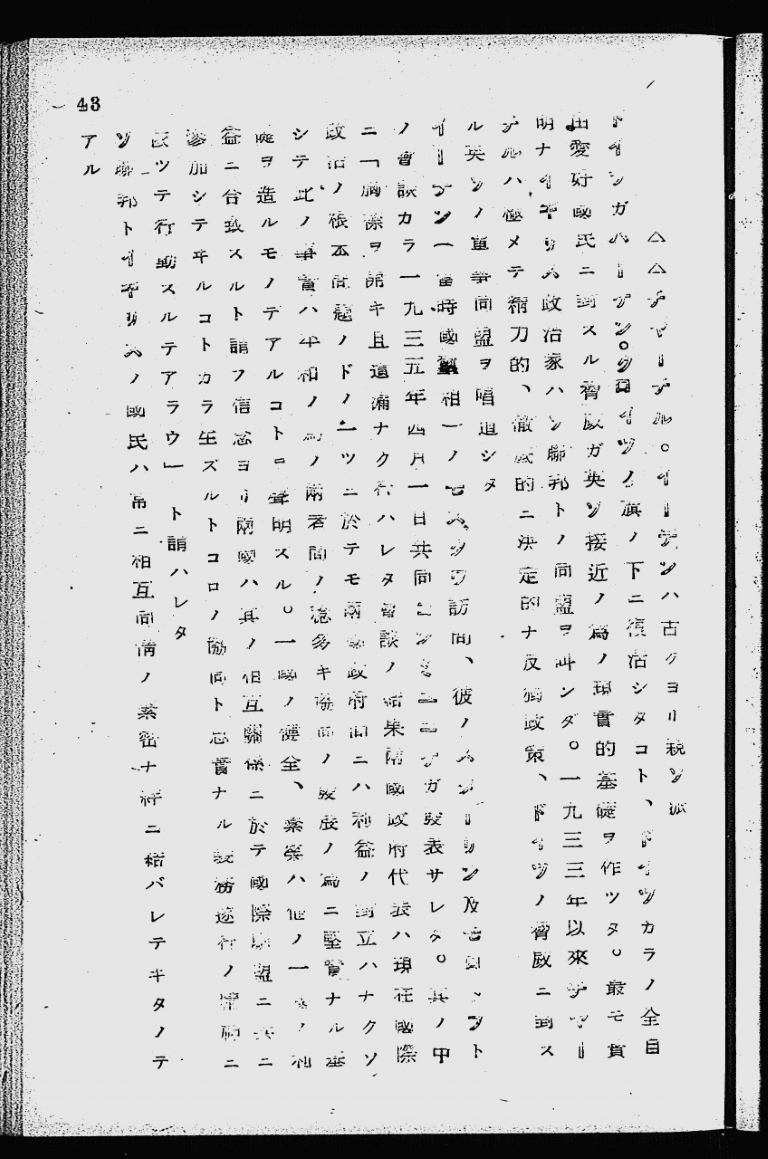 43
△△チャーチル。イーデンハ古クヨリ親ソ派
ドイツガハーケン。クロイツノ旗ノ下ニ復活シタコト、ドイツカラノ全自
由愛好國民ニ對スル脅威ガ英ソ接近ノ為ノ現實的基礎ヲ作ツタ。最モ賢
明ナイギリス政治家ハソ聯邦トノ同盟ヲ叫ンダ。一九三三年以來チヤー
チルハ極メテ精力的、徹底的ニ決定的ナ反獨政策、ドイツノ脅威ニ對ス
ル英ソノ軍事同盟ヲ唱道シタ
イーデン(當時國璽相)ノモスクワ訪問、彼ノスターリン及モロトフト
ノ會談カラ一九三五年四月一日共同コンミユニケガ發表サレタ。其ノ中
ニ「胸襟ヲ開キ且遺漏ナク行ハレタ會談ノ結果兩國政府代表ハ現在國際
政治ノ根本問題ノドノ一ツニ於テモ兩國政府間ニハ利益ノ對立ハナクソ
シテ此ノ事實ハ平和ノ為ノ兩者間ノ多キ協同ノ發展ノ為ニ堅實ナル基
礎ヲ造ルモノテアルコトヲ聲明スル。一國ノ健全、繁榮ハ他ノ一國ノ利
益ニ合致スルト謂フ信念ヨリ兩國ハ其ノ相互關係ニ於テ國際聯盟ニ共ニ
參加シテヰルコトカラ生ズルトコロノ協同ト忠實ナル義務遂行ノ精神ニ
依ツテ行動スルテアラウ」ト謂ハレタ
ソ聯邦トイギリスノ國民ハ常ニ相互同情ノ緊密ナ絆ニ結バレテキタノテ
アル